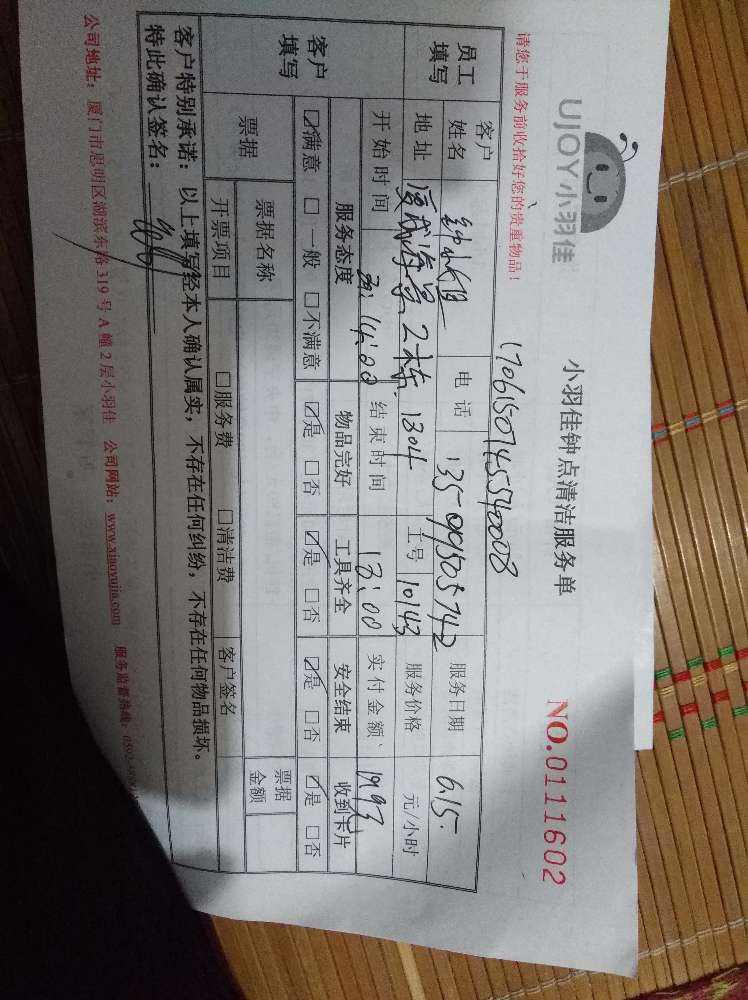 UJOY小羽佳
小羽佳钟点清洁服务单
NO.0111602
请您于服务前收拾好您的贵重物品！
1706150745540008
员工填写
客户姓名
电话 13599505742
服务日期 6.15.
地址 2栋 1304
工号 10143
服务价格 元/小时
开始时间 14:00
结束时间 17:00
实付金额
客户填写
服务态度 物品完好 工具齐全 安全结束 收到卡片
☑满意 □一般 □不满意 ☑是 □否 ☑是 □否 ☑是 □否 ☑是 □否
票据
票据名称
票据金额
开票项目 □服务费 □清洁费 客户签名
客户特别承诺：以上填写经本人确认属实，不存在任何纠纷，不存在任何物品损坏。
特此确认签名：
公司地址：厦门市思明区湖滨东路319号A幢2层小羽佳 公司网站：www.xiaoyujia.com 服务监督热线：